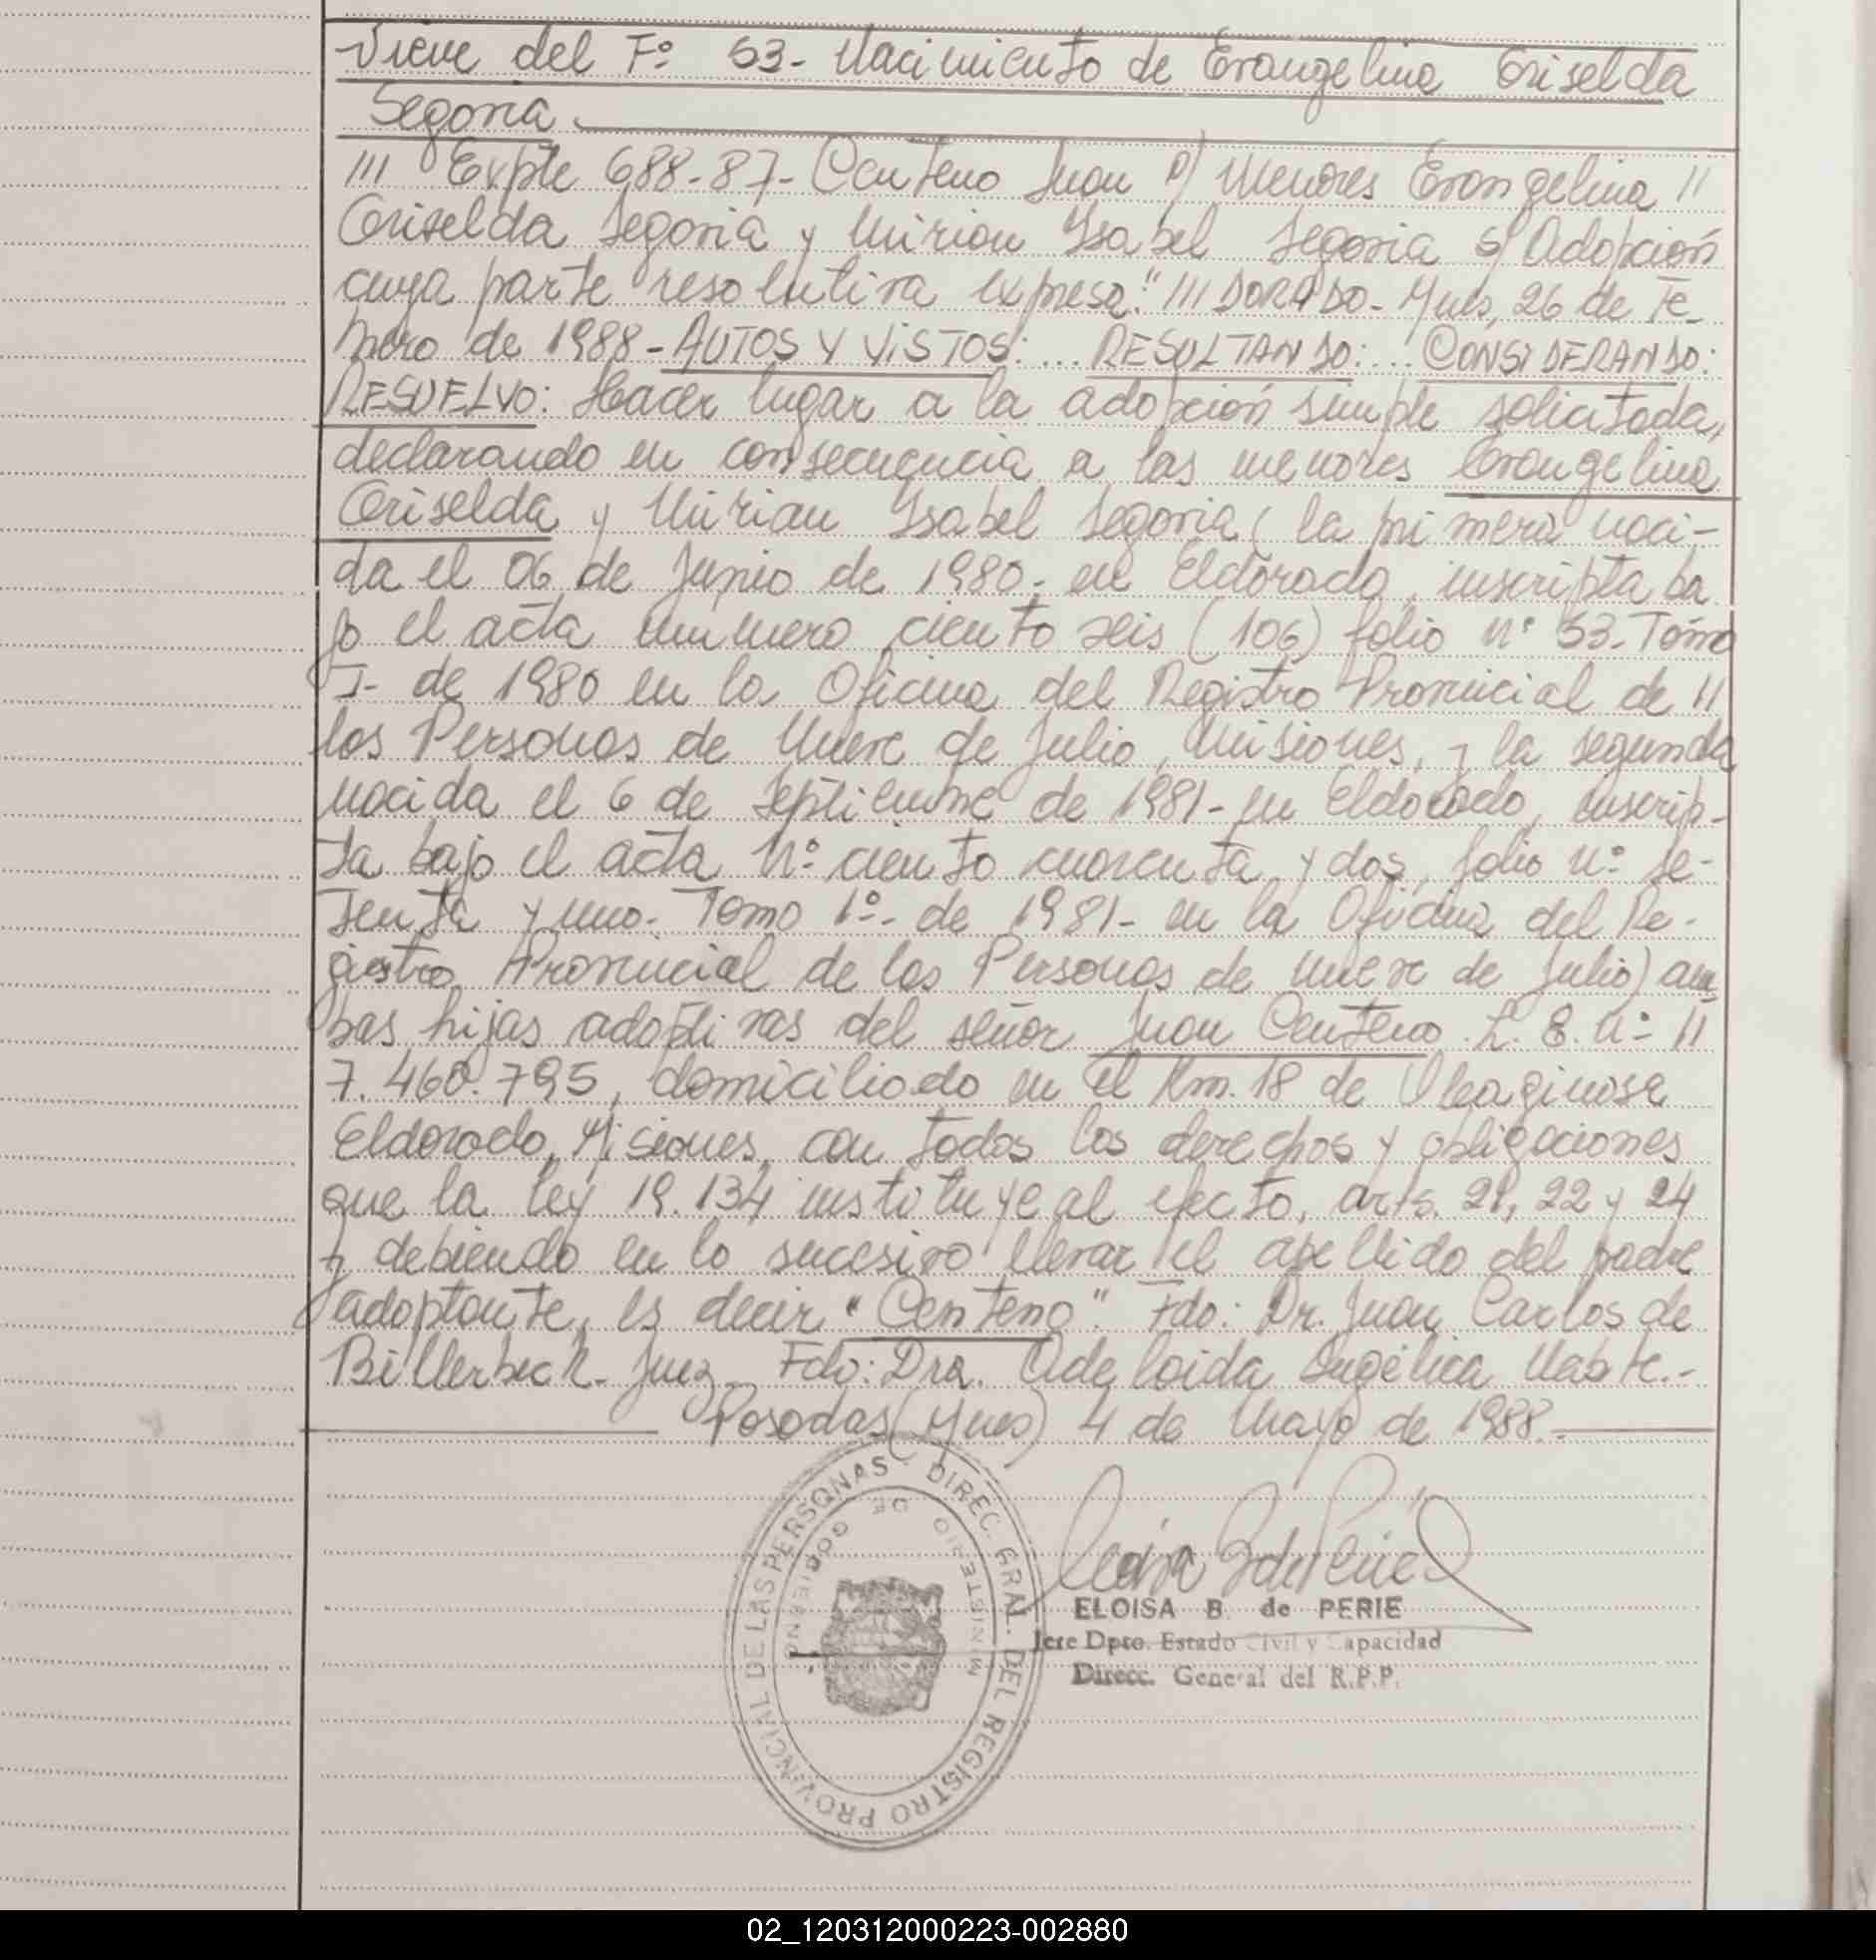 Viene del Fº 53- Nacimiento de Evangelina Griselda
Segovia.
/// Expte 688-87- Centeno Juan p/ Menores Evangelina //
Griselda Segovia y Mirian Isabel Segovia s/ Adopción
cuya parte resolutiva expresa: "///DORADO- Mnes, 26 de Fe-
brero de 1988- AUTOS Y VISTOS:... RESULTANDO:... CONSIDERANDO:
RESUELVO: Hacer lugar a la adopción simple solicitada,
declarando en consecuencia a las menores Evangelina
Griselda y Mirian Isabel Segovia (la primera naci-
da el 06 de Junio de 1980- en Eldorado, inscripta ba
jo el acta número ciento seis (106) folio nº 53- Tomo
I- de 1980 en la Oficina del Registro Provincial de //
las Personas de Nueve de Julio, Misiones, y la segunda
nacida el 6 de Septiembre de 1981- en Eldorado, inscrip-
ta bajo el acta Nº ciento cuarenta y dos, folio nº se-
tenta y uno- Tomo 1º- de 1981- en la Oficina del Re-
gistro Provincial de las Personas de Nueve de Julio) am-
bas hijas adoptivas del señor Juan Centeno L. E. nº //
7.460.795, domiciliado en el Km. 18 de Oleaginosa
Eldorado, Misiones, con todos los derechos y obligaciones
que la ley 19.134 instituye al efecto, arts. 21, 22 y 24
y debiendo en lo sucesivo llevar el apellido del padre
adoptante, es decir "Centeno". Fdo: Dr. Juan Carlos de
Billerbeck- Juez- Fdo: Dra. Adeloida Angélica
Posadas (Mnes) 4 de Mayo de 1988.-
DIREC. GRAL. DEL REGISTRO PROVINCIAL DE LAS PERSONAS
MINISTERIO DE GOBIERNO
ELOISA B. de PERIE
Jefe Dpto. Estado Civil y Capacidad
Direcc. General del R.P.P.
02_120312000223-002880